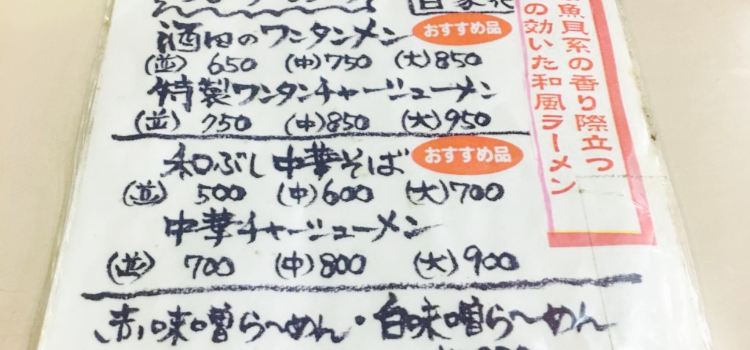 酒田のワンタンメン おすすめ品
(並) 650 (中)750 (大)850
特製ワンタンチャーシューメン
(並) 750 (中)850 (大)950
和ぶし中華そば おすすめ品
(並) 500 (中)600 (大)700
中華チャーシューメン
(並) 700 (中)800 (大)900
赤味噌ら〜めん・白味噌ら〜めん
魚貝系の香り際立つ
の効いた和風ラーメン